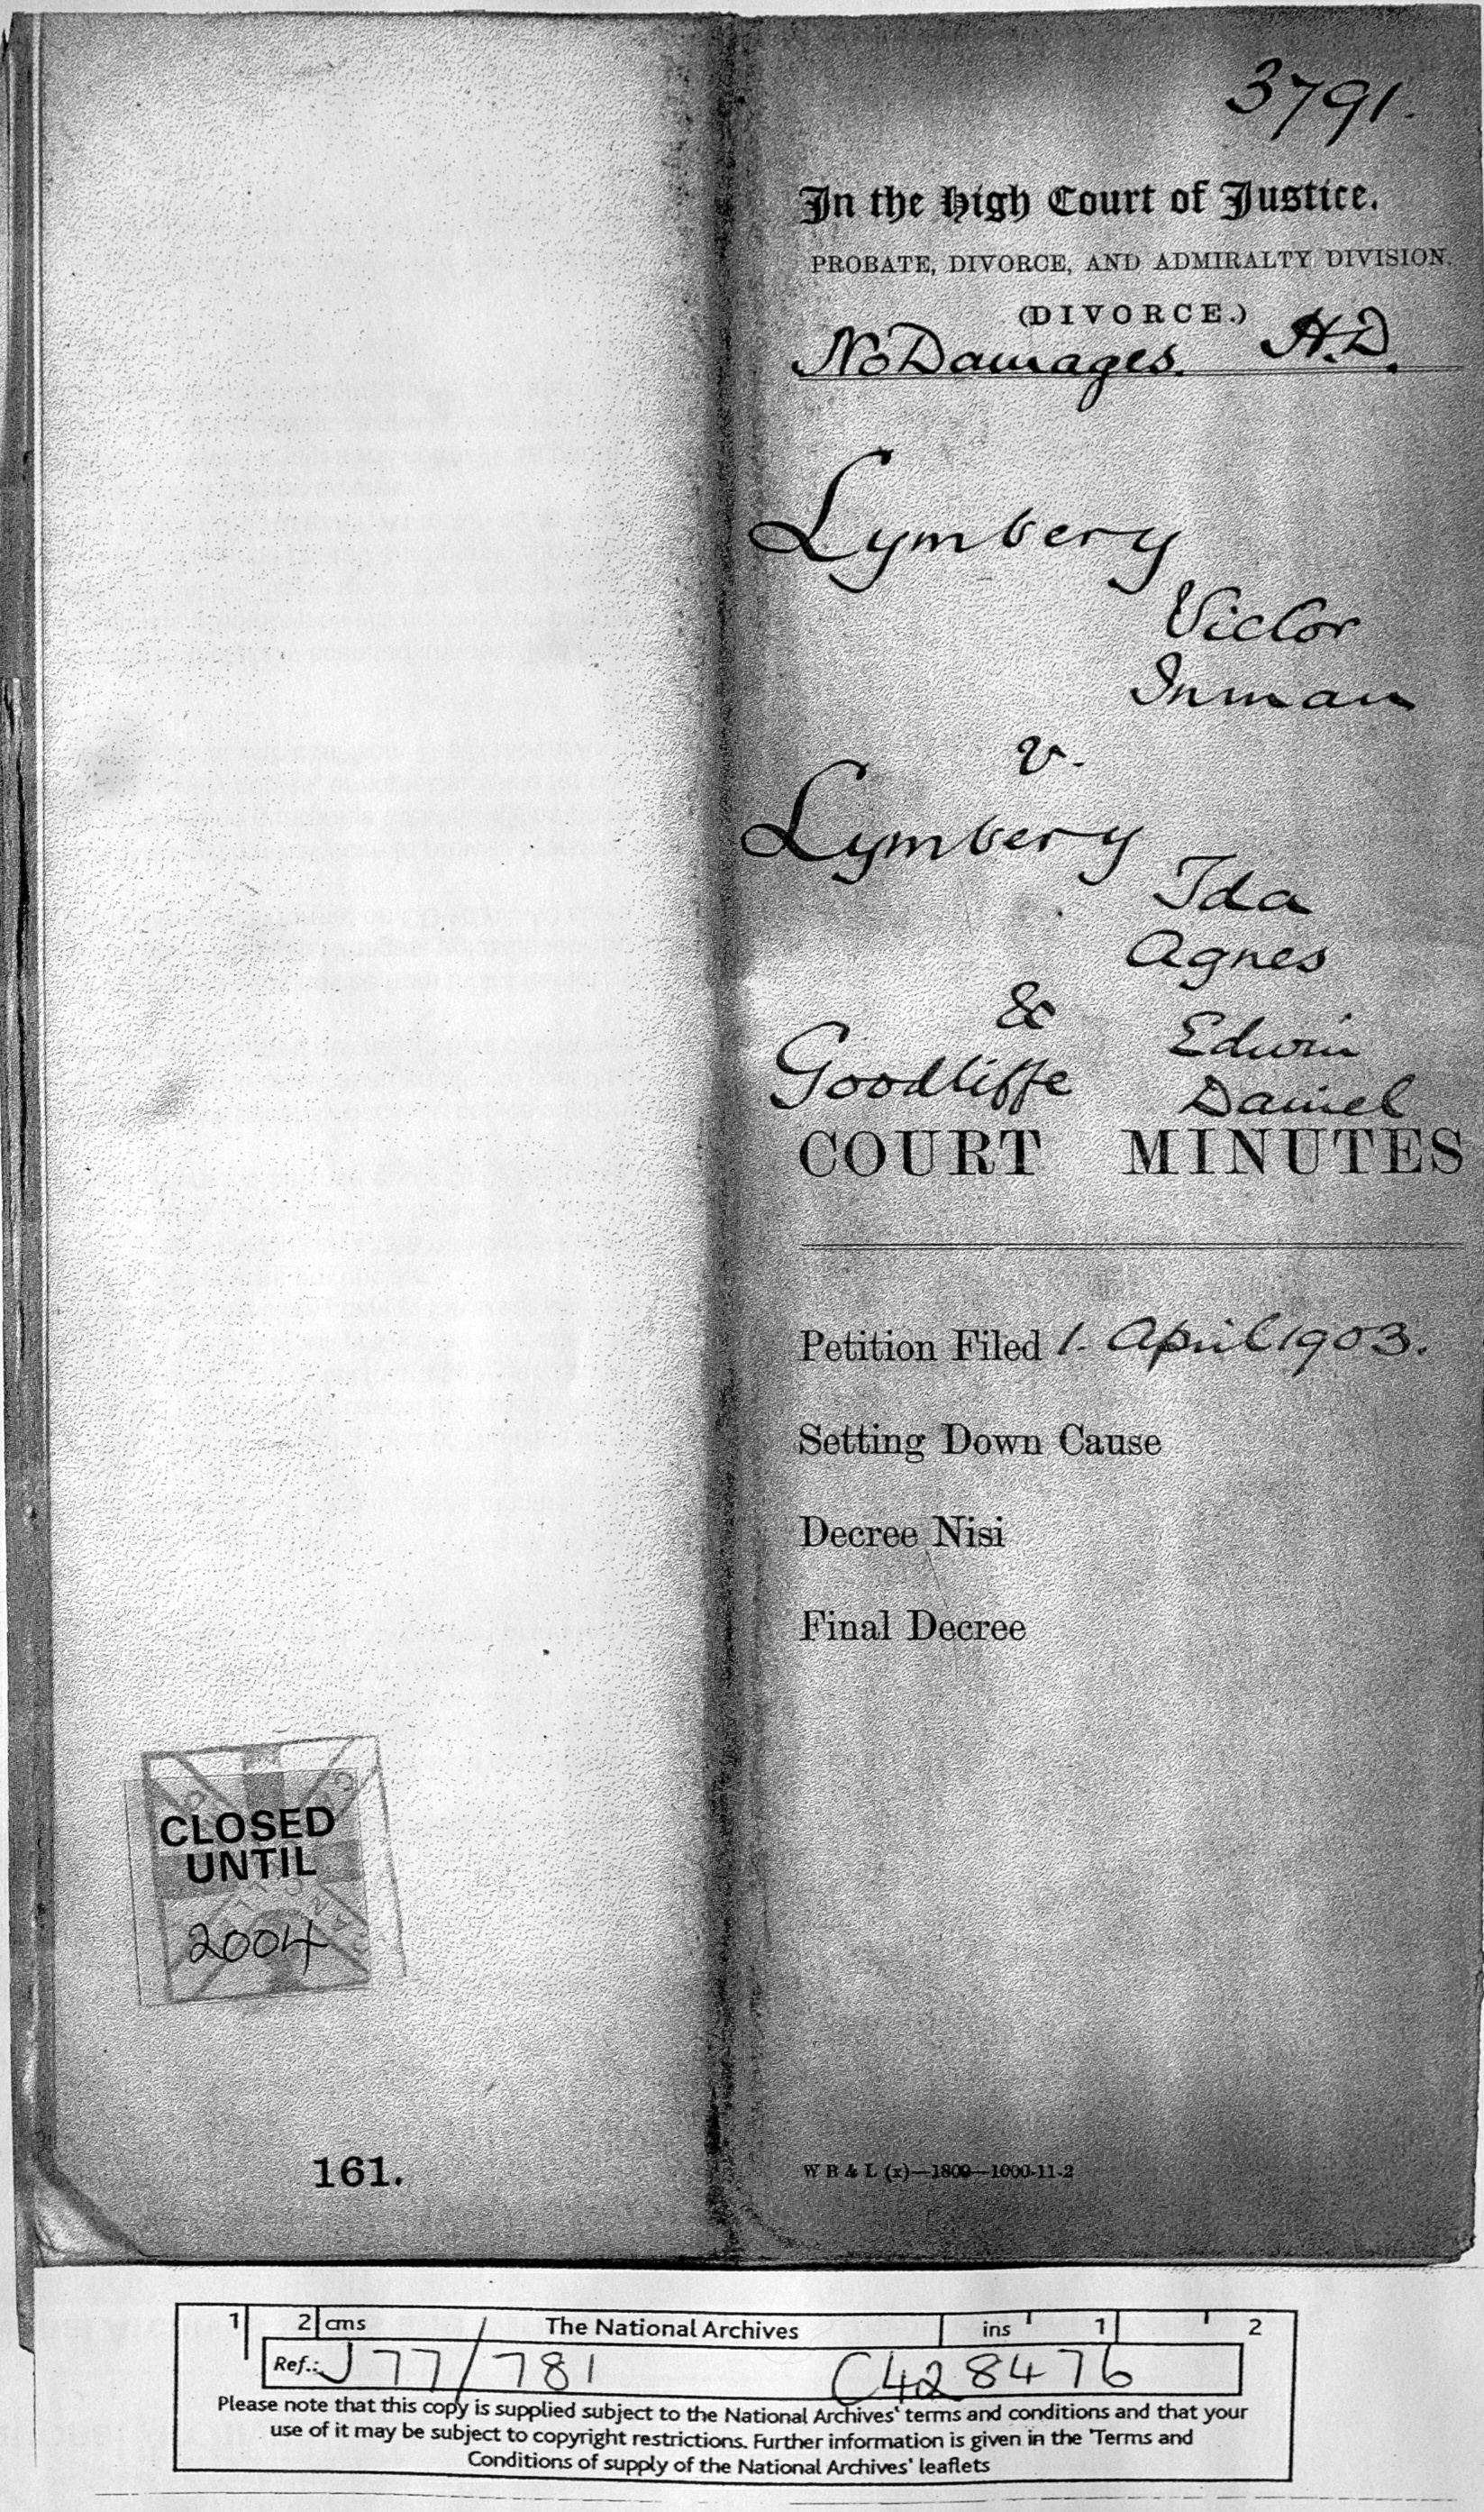 3791.
In the High Court of Justice.
PROBATE, DIVORCE, AND ADMIRALTY DIVISION.
(DIVORCE.)
No Damages. H.D.
Lymbery
Victor
Inman
v.
Lymbery
Ida
Agnes
&
Edwin
Goodliffe
Daniel
COURT MINUTES
Petition Filed 1. April 1903.
Setting Down Cause
Decree Nisi
Final Decree
CLOSED
UNTIL
2004
161.
W B & L (x)—1809—1000-11-2
1 2 cms The National Archives ins 1 2
Ref.: J77/781 C428476
Please note that this copy is supplied subject to the National Archives' terms and conditions and that your
use of it may be subject to copyright restrictions. Further information is given in the 'Terms and
Conditions of supply of the National Archives' leaflets